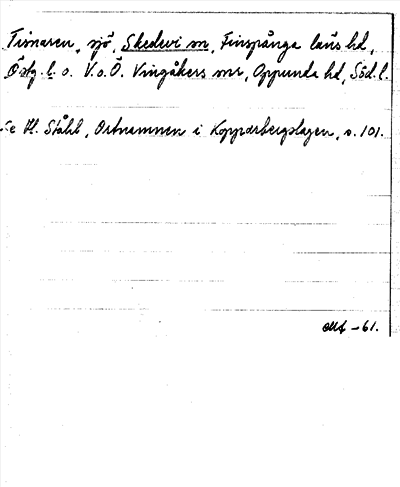 Tisnaren, sjö, Skedevi sn, Finspånga läns hd,
Östg. l. o. V. o. Ö. Vingåkers snr, Oppunda hd, Söd. l.
Se H. Ståhl, Ortnamnen i Kopparbergslagen, s. 101.
-61.